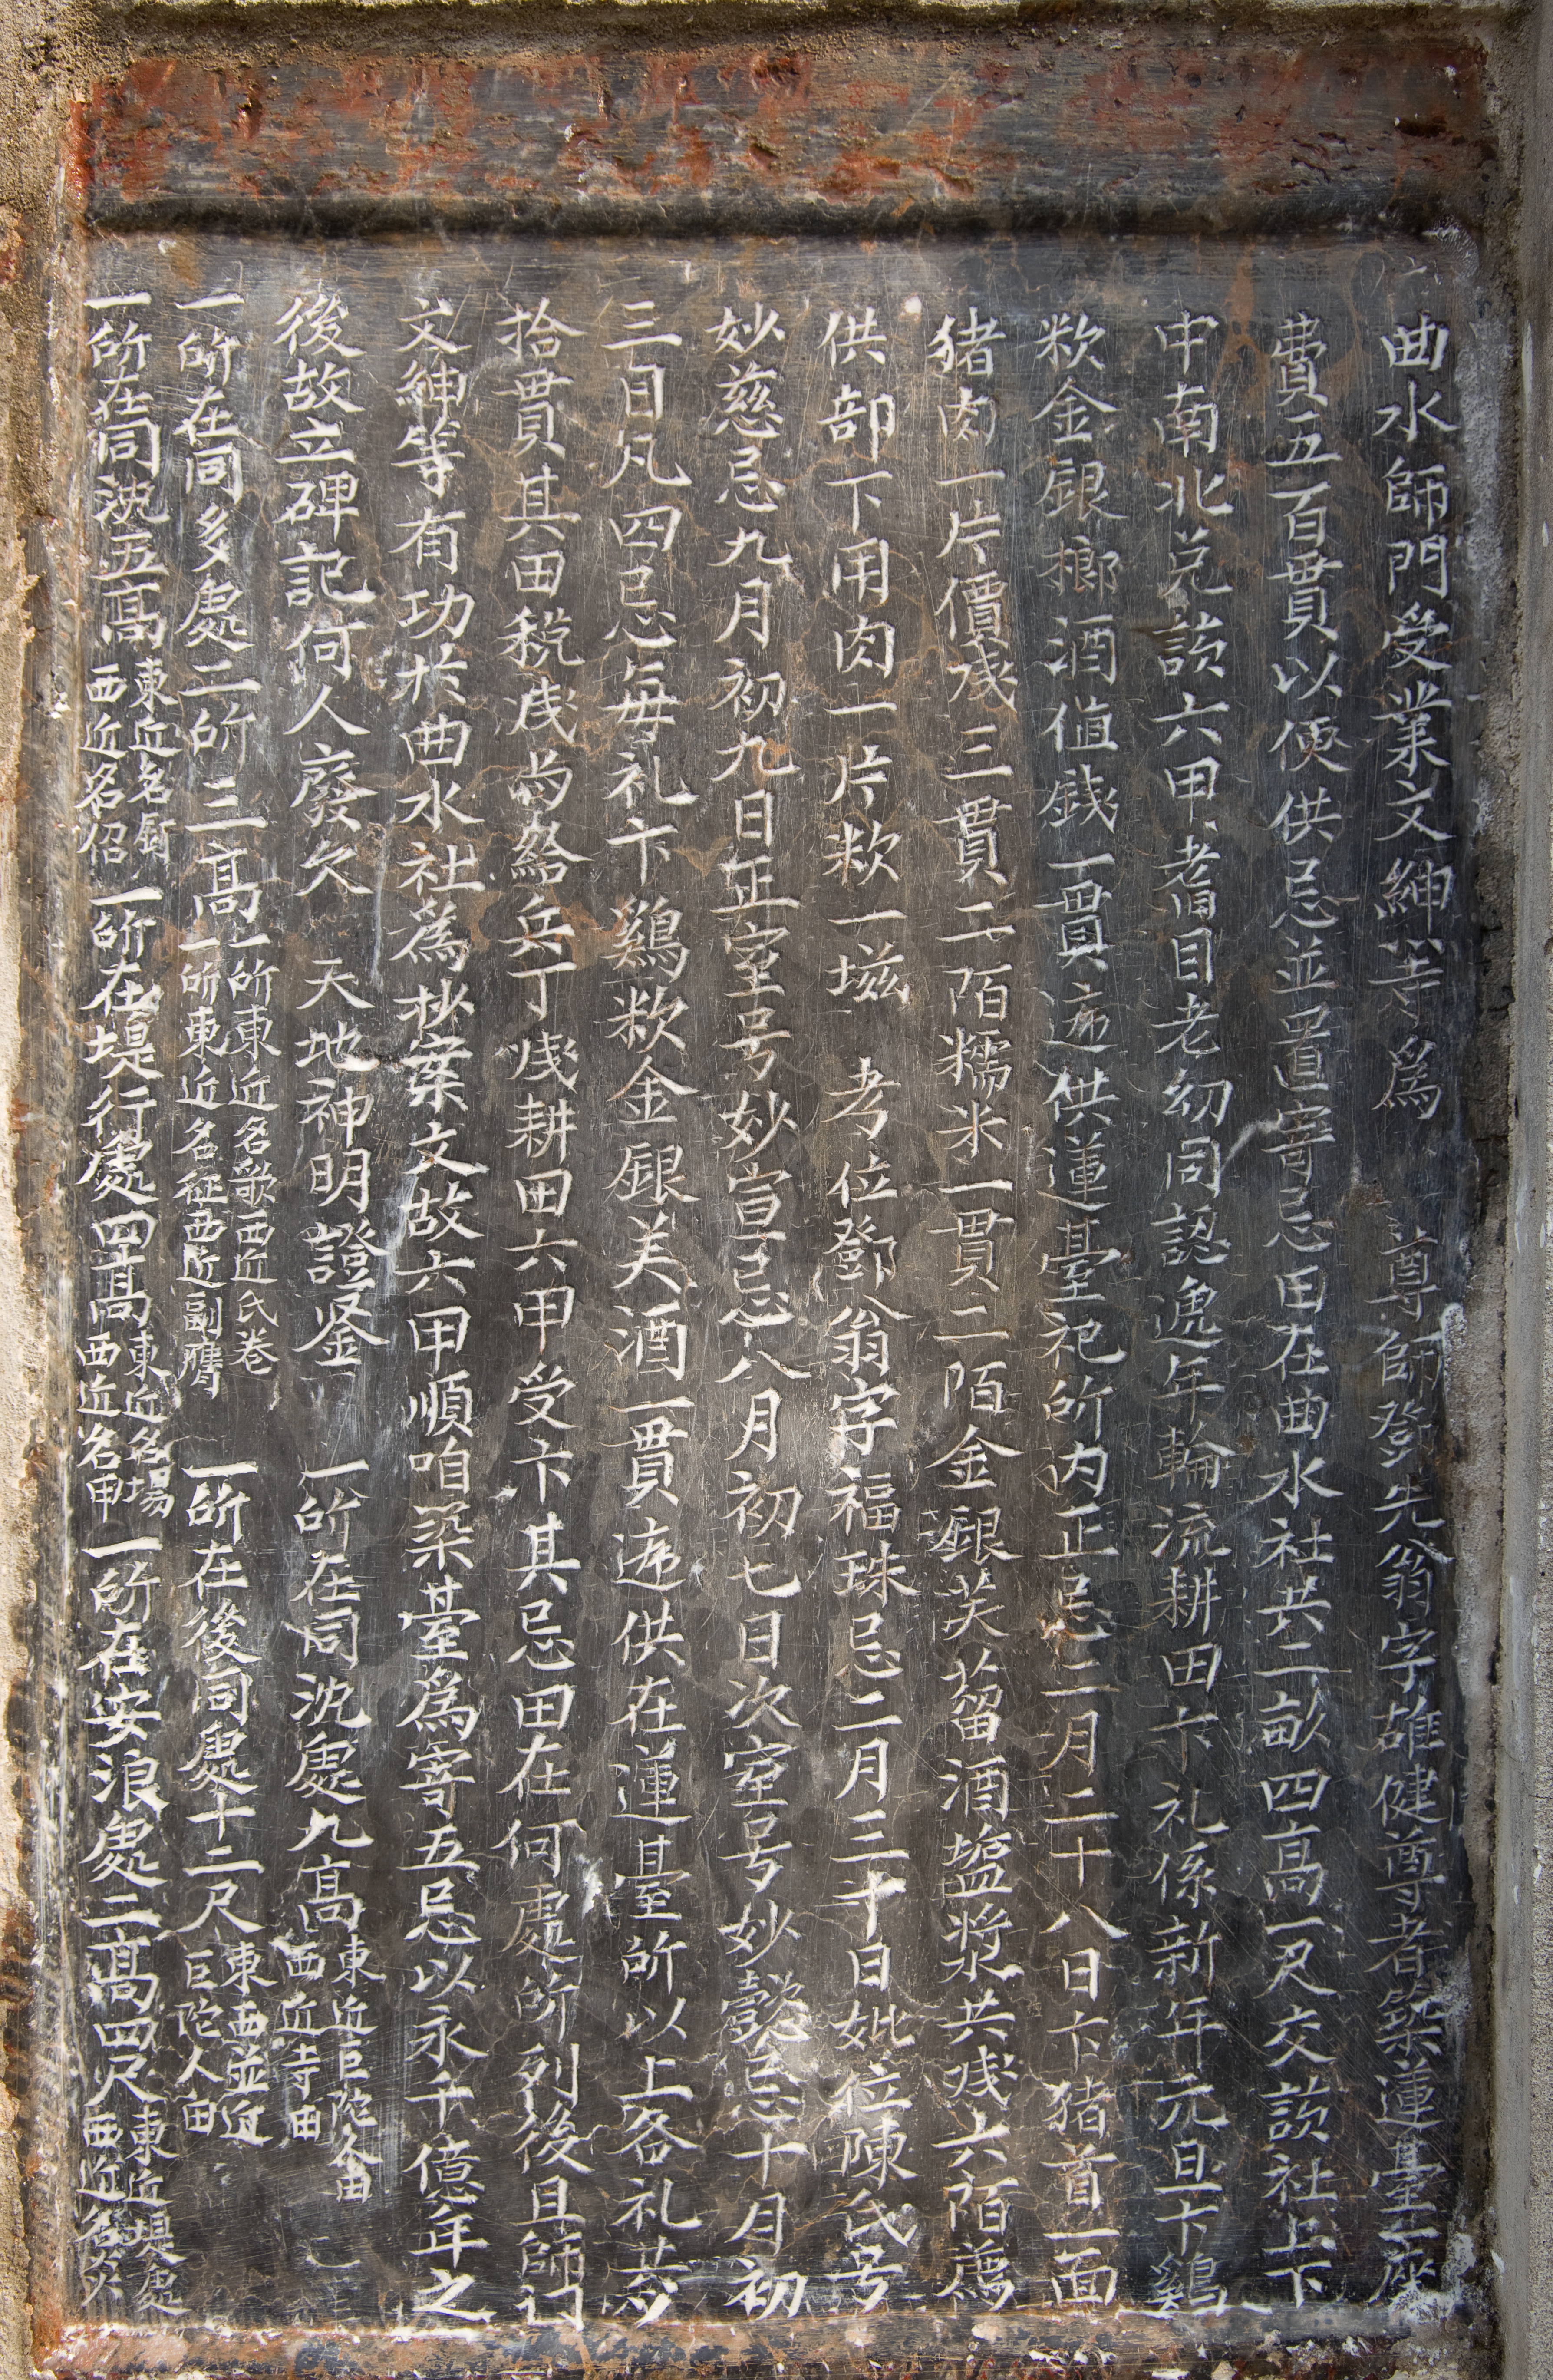 曲水師門受業文紳等爲　尊師鄧先翁字雄健尊者築蓮臺一座
費五百貫以便供忌並置寄忌田在曲水社共二畝四高一尺交該社上下
中南北兌該六甲耆目老幼同認逓年輪流耕田卞礼係新年元旦卞鷄
炊金銀榔酒值銭一貫逓供蓮臺祀所内正忌二月二十八日卞猪首一面
猪肉一片價戋三貫二陌糯米一貫二陌金銀芙蒥酒塩漿共戋六陌廌
供部下用肉一片炊一𡑱　考位鄧翁字福珠忌二月三十日妣位陳氏号
妙慈忌九月初九日正室号妙宣忌八月初七日次室号妙懿忌十月初
三日凡四忌每礼卞鷄炊金銀美酒一貫逓供在蓮臺所以上各礼
拾貫其田税戋给兵丁戋耕田六甲受卞其忌田在何處所列後且師门
文紳等有功於曲水社爲抄案文故六甲順咱築臺爲寄五忌以永千億年之
後故立碑記何人廢欠　天地神明證鉴　一所在同沈處九高東近巨陀仝田西近寺田
一所在同多處二所三高一所東近名歌西近氏卷一所東近名征西近副膺　一所在後同處十二尺東西並近巨陀人田
一所在同沈五高東近名厨西近名侶　一所在堤行處四高東近名場西近名申　一所在安浪處二高四尺東近堤處西近名